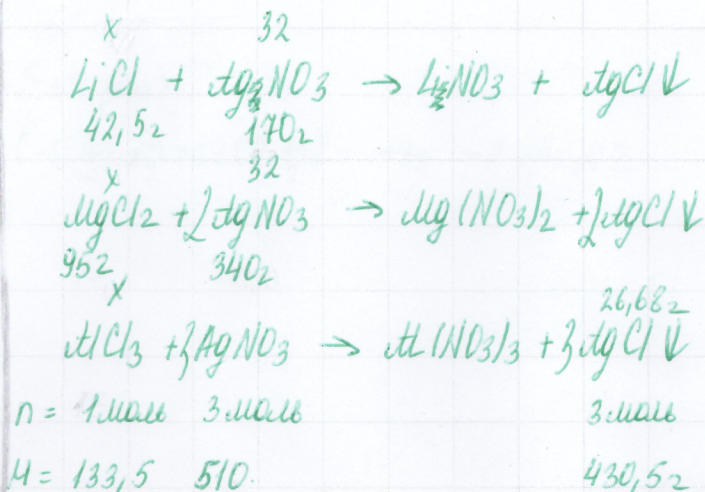 x 32
LiCl + AgNO3 → LiNO3 + AgCl↓
42,5г 170г
x 32
MgCl2 + 2AgNO3 → Mg(NO3)2 + 2AgCl↓
95г 340г
x 26,68г
AlCl3 + 3AgNO3 → Al(NO3)3 + 3AgCl↓
n = 1моль 3моль 3моль
M = 133,5 510. 430,5г